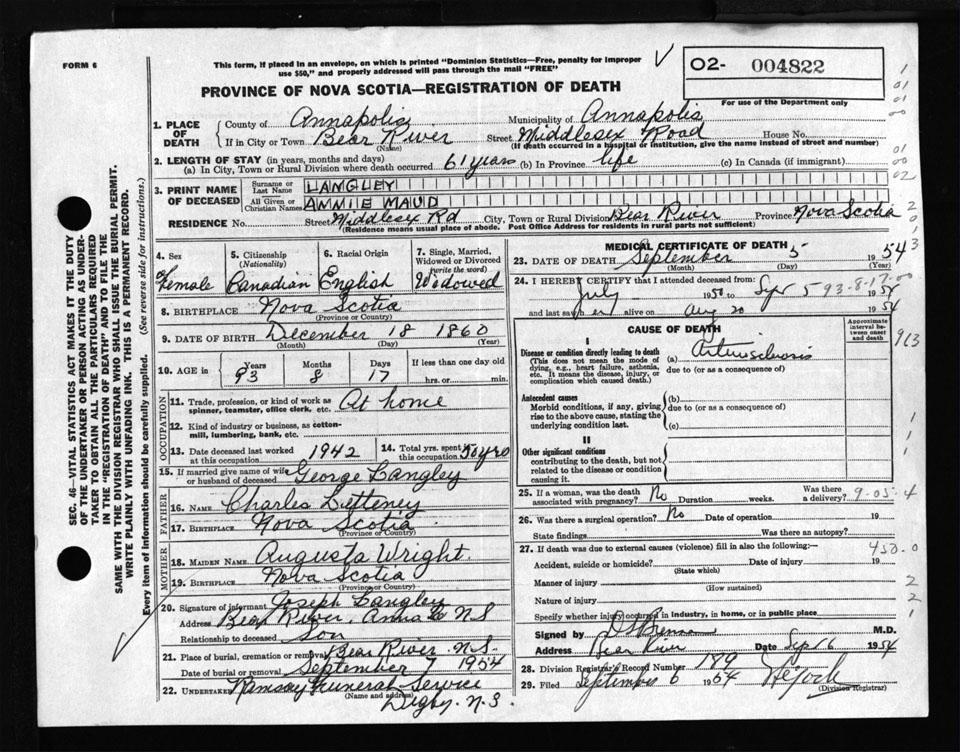 FORM 6
This form, if placed in an envelope, on which is printed "Dominion Statistics—Free, penalty for improper use $50," and properly addressed will pass through the mail "FREE"
O2- 004822
For use of the Department only
PROVINCE OF NOVA SCOTIA—REGISTRATION OF DEATH
1. PLACE OF DEATH
County of Annapolis Municipality of Annapolis
If in City or Town Bear River Street Middlesex Road House No.
(Name) (If death occurred in a hospital or institution, give the name instead of street and number)
2. LENGTH OF STAY (in years, months and days)
(a) In City, Town or Rural Division where death occurred 61 years (b) In Province life (c) In Canada (if immigrant)
3. PRINT NAME OF DECEASED
Surname or Last Name LANGLEY
All Given or Christian Names ANNIE MAUD
RESIDENCE No. Street Middlesex Rd City, Town or Rural Division Bear River Province Nova Scotia
(Residence means usual place of abode. Post Office Address for residents in rural parts not sufficient)
4. Sex Female
5. Citizenship (Nationality) Canadian
6. Racial Origin English
7. Single, Married, Widowed or Divorced (write the word) Widowed
8. BIRTHPLACE Nova Scotia
(Province or Country)
9. DATE OF BIRTH December 18 1860
(Month) (Day) (Year)
10. AGE in Years 93 Months 8 Days 17 If less than one day old hrs. or min.
OCCUPATION
11. Trade, profession, or kind of work as spinner, teamster, office clerk, etc. At home
12. Kind of industry or business, as cotton-mill, lumbering, bank, etc.
13. Date deceased last worked at this occupation 1942
14. Total yrs. spent in this occupation 50 yrs
15. If married give name of wife or husband of deceased George Langley
FATHER
16. NAME Charles
17. BIRTHPLACE Nova Scotia
(Province or Country)
MOTHER
18. MAIDEN NAME Augusta Wright.
19. BIRTHPLACE Nova Scotia
(Province or Country)
20. Signature of informant Joseph Langley
Address Bear River, Anna Co NS
Relationship to deceased Son
21. Place of burial, cremation or removal Bear River N.S.
Date of burial or removal September 7 1954
22. Undertaker Ramsay Funeral Service
(Name and address)
Digby. N.S.
MEDICAL CERTIFICATE OF DEATH
23. DATE OF DEATH September 5 1954
(Month) (Day) (Year)
24. I HEREBY CERTIFY that I attended deceased from:
July 1950 to Sept 5 1954
93-8-17
and last saw her alive on Aug 20 1954
CAUSE OF DEATH
Approximate interval between onset and death
I
Disease or condition directly leading to death (a) Arteriosclerosis
(This does not mean the mode of dying, e.g., heart failure, asthenia, etc. It means the disease, injury, or complication which caused death.)
due to (or as a consequence of)
Antecedent causes
Morbid conditions, if any, giving rise to the above cause, stating the underlying condition last.
(b)
due to (or as a consequence of)
(c)
II
Other significant conditions
contributing to the death, but not related to the disease or condition causing it.
25. If a woman, was the death associated with pregnancy? No Duration weeks. Was there a delivery?
26. Was there a surgical operation? No Date of operation 19
State findings Was there an autopsy?
27. If death was due to external causes (violence) fill in also the following:—
450.0
Accident, suicide or homicide? Date of injury 19
(State which)
Manner of injury
(How sustained)
Nature of injury
Specify whether injury occurred in industry, in home, or in public place
Signed by M.D.
Address Bear River Date Sept 6 1954
28. Division Registrar's Record Number 189
29. Filed September 6 1954
(Division Registrar)
SEC. 46—VITAL STATISTICS ACT MAKES IT THE DUTY
OF THE UNDERTAKER OR PERSON ACTING AS UNDER-
TAKER TO OBTAIN ALL THE PARTICULARS REQUIRED
IN THE "REGISTRATION OF DEATH" AND TO FILE THE
SAME WITH THE DIVISION REGISTRAR WHO SHALL ISSUE THE BURIAL PERMIT.
WRITE PLAINLY WITH UNFADING INK. THIS IS A PERMANENT RECORD.
Every item of information should be carefully supplied. (See reverse side for instructions.)